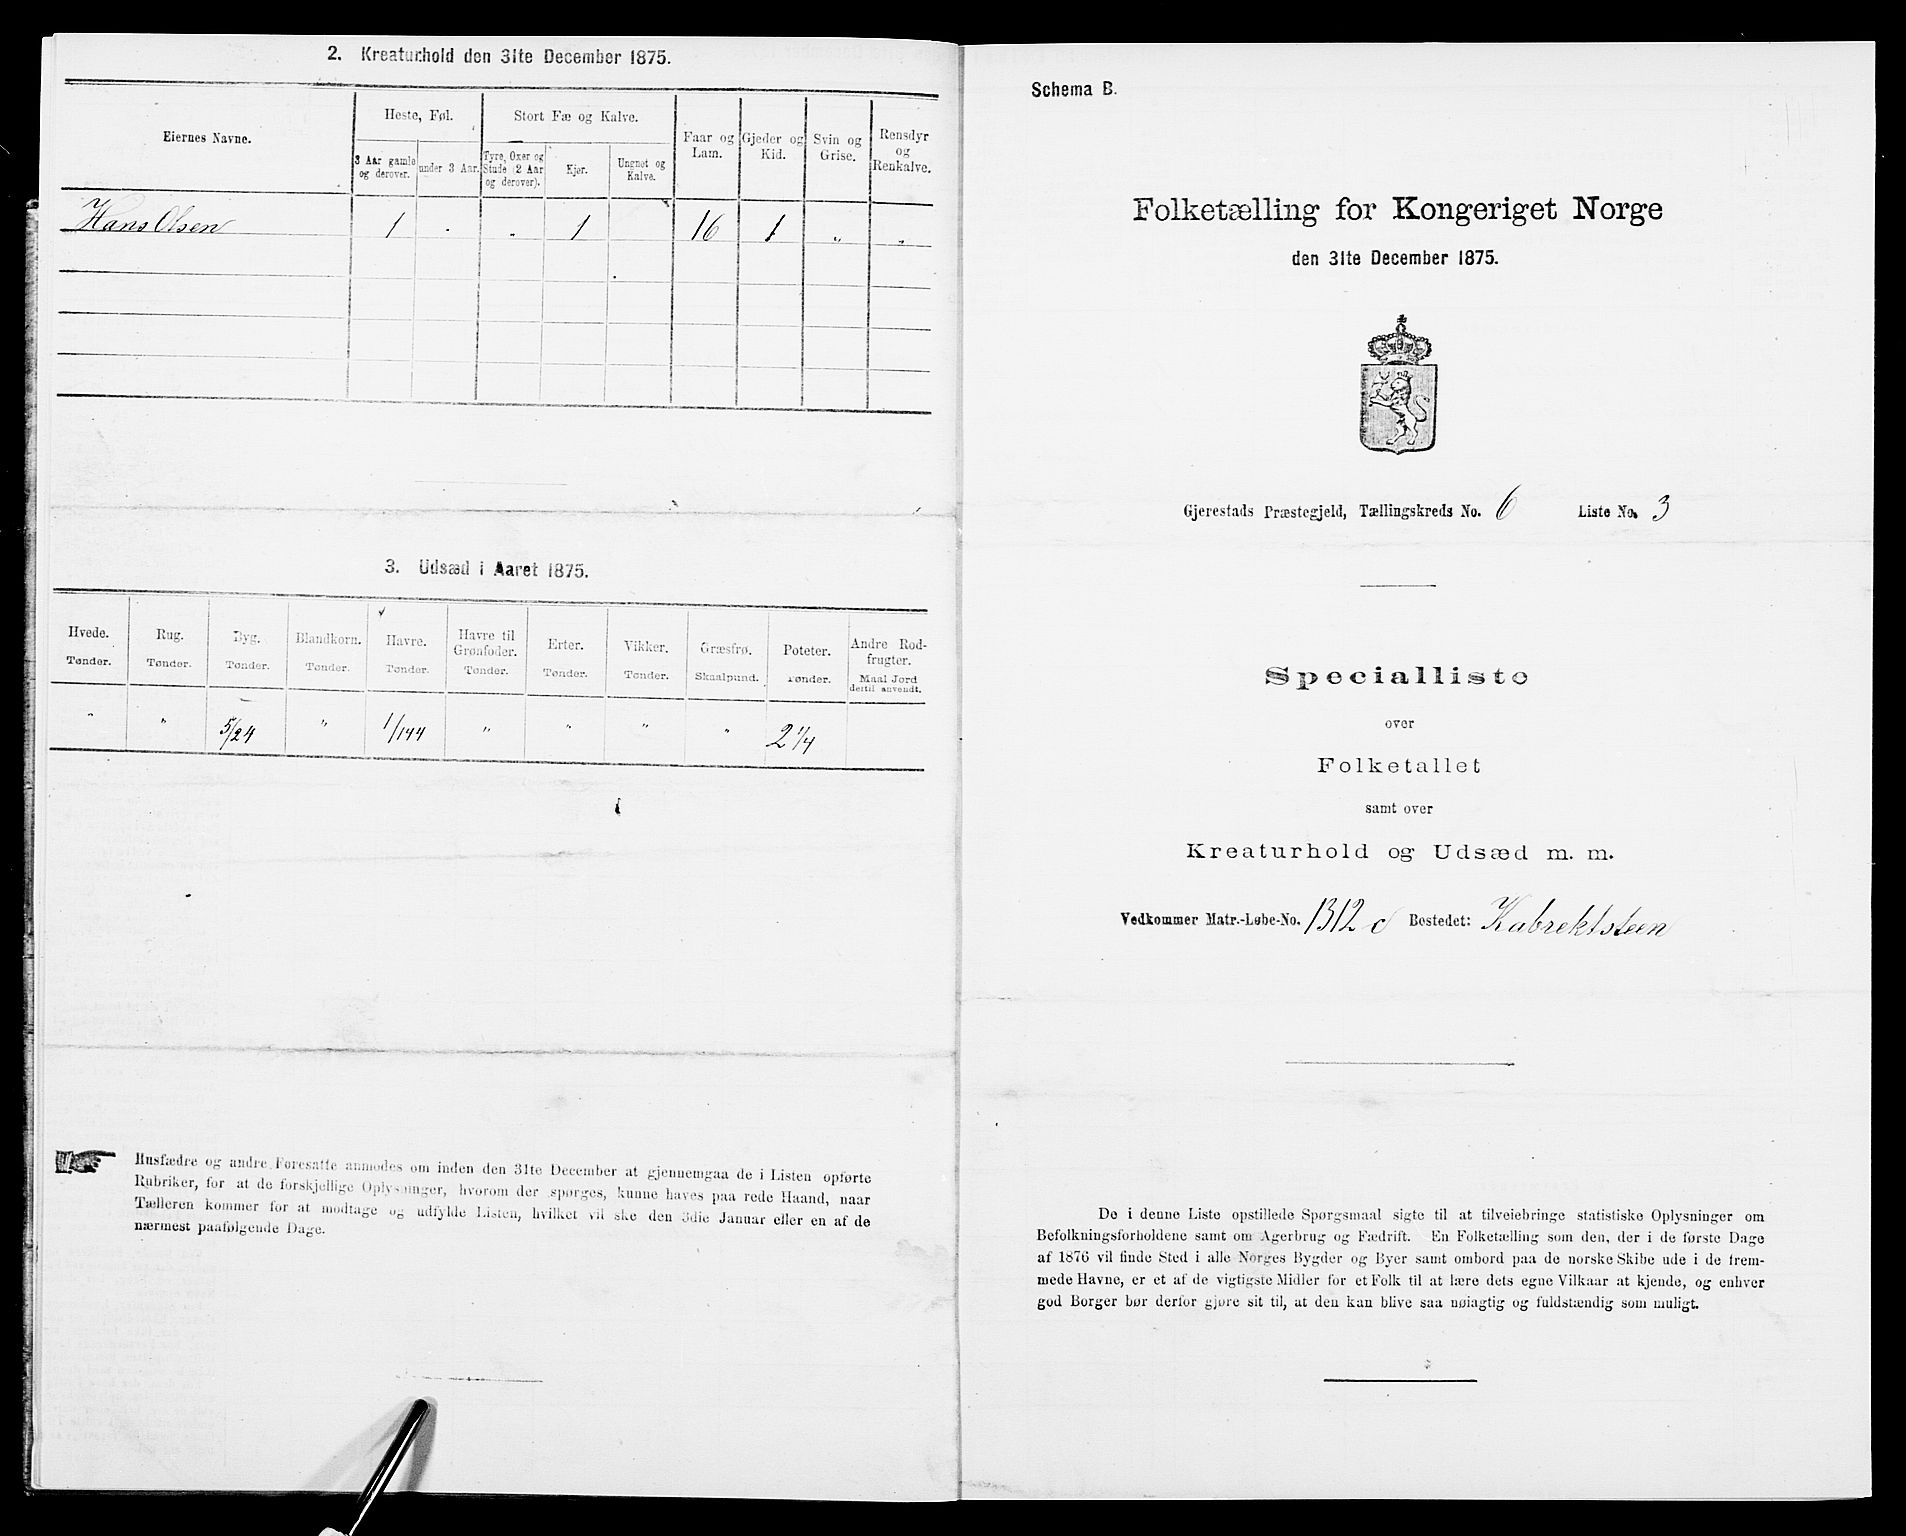 2. Kreaturhold den 31te December 1875.
Eiernes Navne.
Heste, Føl.
Stort Fæ og Kalve.
Faar og Lam.
Gjeder og Kid.
Svin og Grise.
Rensdyr og Renkalve.
3 Aar gamle og derover.
under 3 Aar.
Tyre, Oxer og Stude (2 Aar og derover).
Kjør.
Ungnøt og Kalve.
Hans Olsen 1 . „ 1 16 1 „ „
3. Udsæd i Aaret 1875.
Hvede. Tønder.
Rug. Tønder.
Byg. Tønder.
Blandkorn. Tønder.
Havre. Tønder.
Havre til Grønfoder. Tønder.
Erter. Tønder.
Vikker. Tønder.
Græsfrø. Skaalpund.
Poteter. Tønder.
Andre Rodfrugter. Maal Jord dertil anvendt.
" " 5/24 " 1/144 " " " " 2 1/4
Husfædre og andre Foresatte anmodes om inden den 31te December at gjennemgaa de i Listen opførte
Rubriker, for at de forskjellige Oplysninger, hvorom der spørges, kunne haves paa rede Haand, naar
Tælleren kommer for at modtage og udfylde Listen, hvilket vil ske den 3die Januar eller en af de
nærmest paafølgende Dage.
Schema B.
Folketælling for Kongeriget Norge
den 31te December 1875.
Gjerestads Præstegjeld, Tællingskreds No. 6 Liste No. 3
Specialliste
over
Folketallet
samt over
Kreaturhold og Udsæd m. m.
Vedkommer Matr.-Løbe-No. 1312 c Bostedet: Kabrektsteen
De i denne Liste opstillede Spørgsmaal sigte til at tilveiebringe statistiske Oplysninger om
Befolkningsforholdene samt om Agerbrug og Fædrift. En Folketælling som den, der i de første Dage
af 1876 vil finde Sted i alle Norges Bygder og Byer samt ombord paa de norske Skibe ude i de frem-
mede Havne, er et af de vigtigste Midler for et Folk til at lære dets egne Vilkaar at kjende, og enhver
god Borger bør derfor gjøre sit til, at den kan blive saa nøiagtig og fuldstændig som muligt.